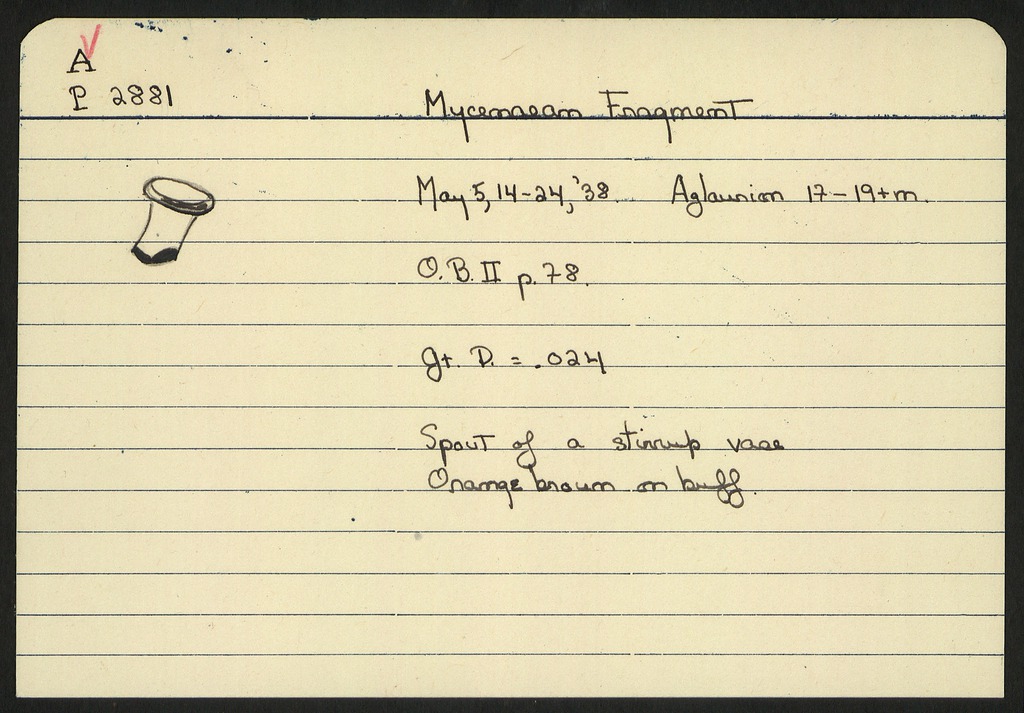 A
P 2881
Mycenaean Fragment
May 5, 14-24, '38 Aglaurion 17-19+m.
O.B. II p. 78.
gt. D. = .024
Spout of a stirrup vase
Orange brown on buff.